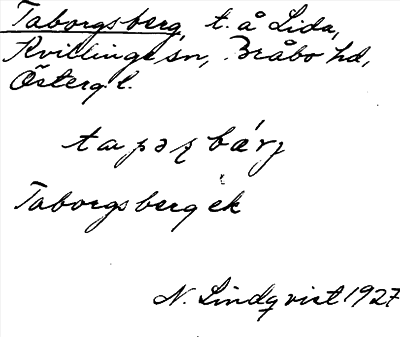 Taborgsberg, t. å Lida,
Kvillinge sn, Bråbo hd,
Östergl.
tapǝʂbǽrj
Taborgsberg ek
N. Lindqvist 1927